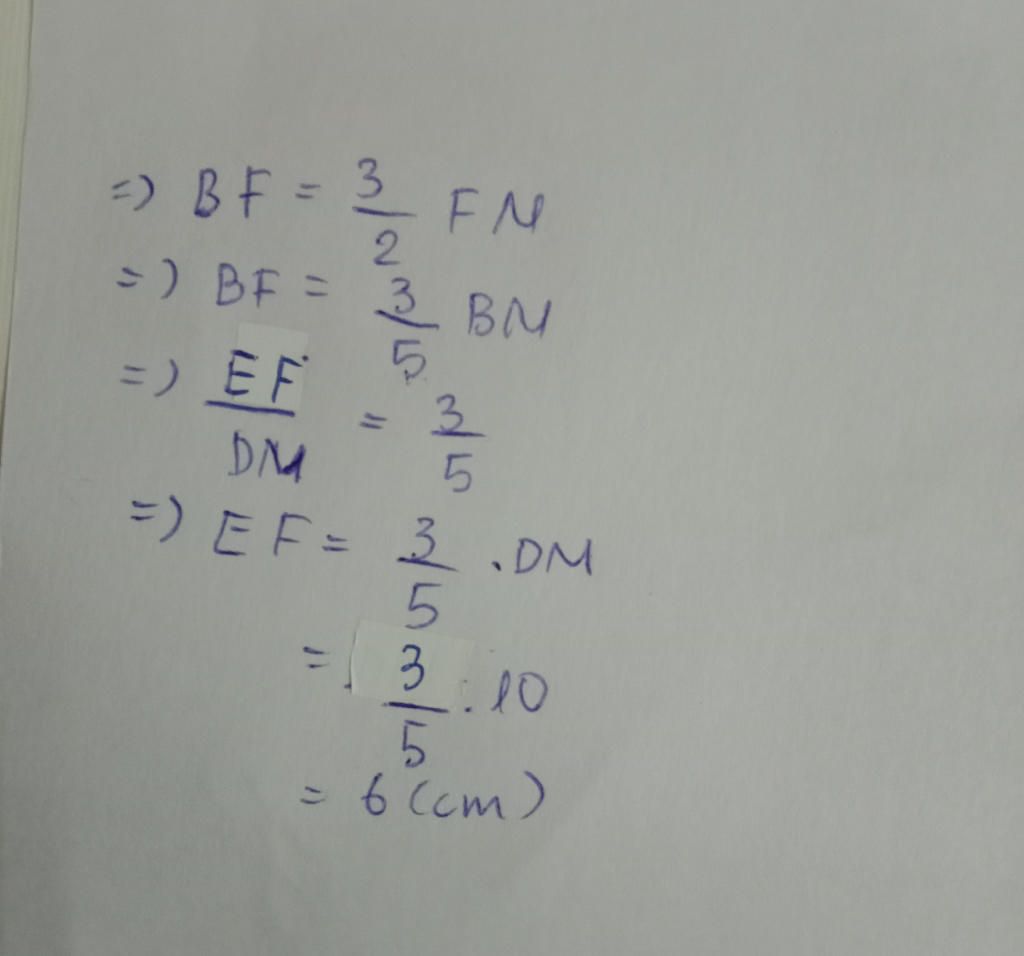 =) BF = 3/2 FM
=) BF = 3/5 BM
=) EF/DM = 3/5
=) EF = 3/5 . DM
= 3/5 . 10
= 6 (cm)